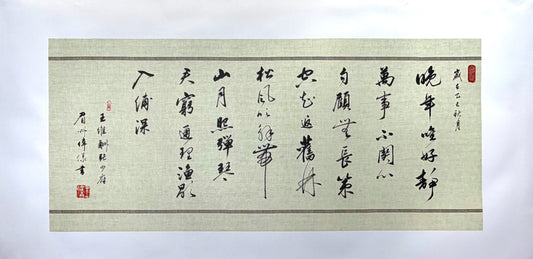 歲在乙巳秋月
晚年唯好静
萬事不關心
自顧無長策
空知返舊林
松風吹解帶
山月照彈琴
窮通理漁歌
入浦深
王維酬張少府
眉州偉書